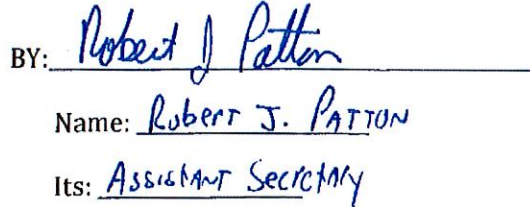 BY: Robert J Patton
Name: Robert J. PATTON
Its: Assistant Secretary